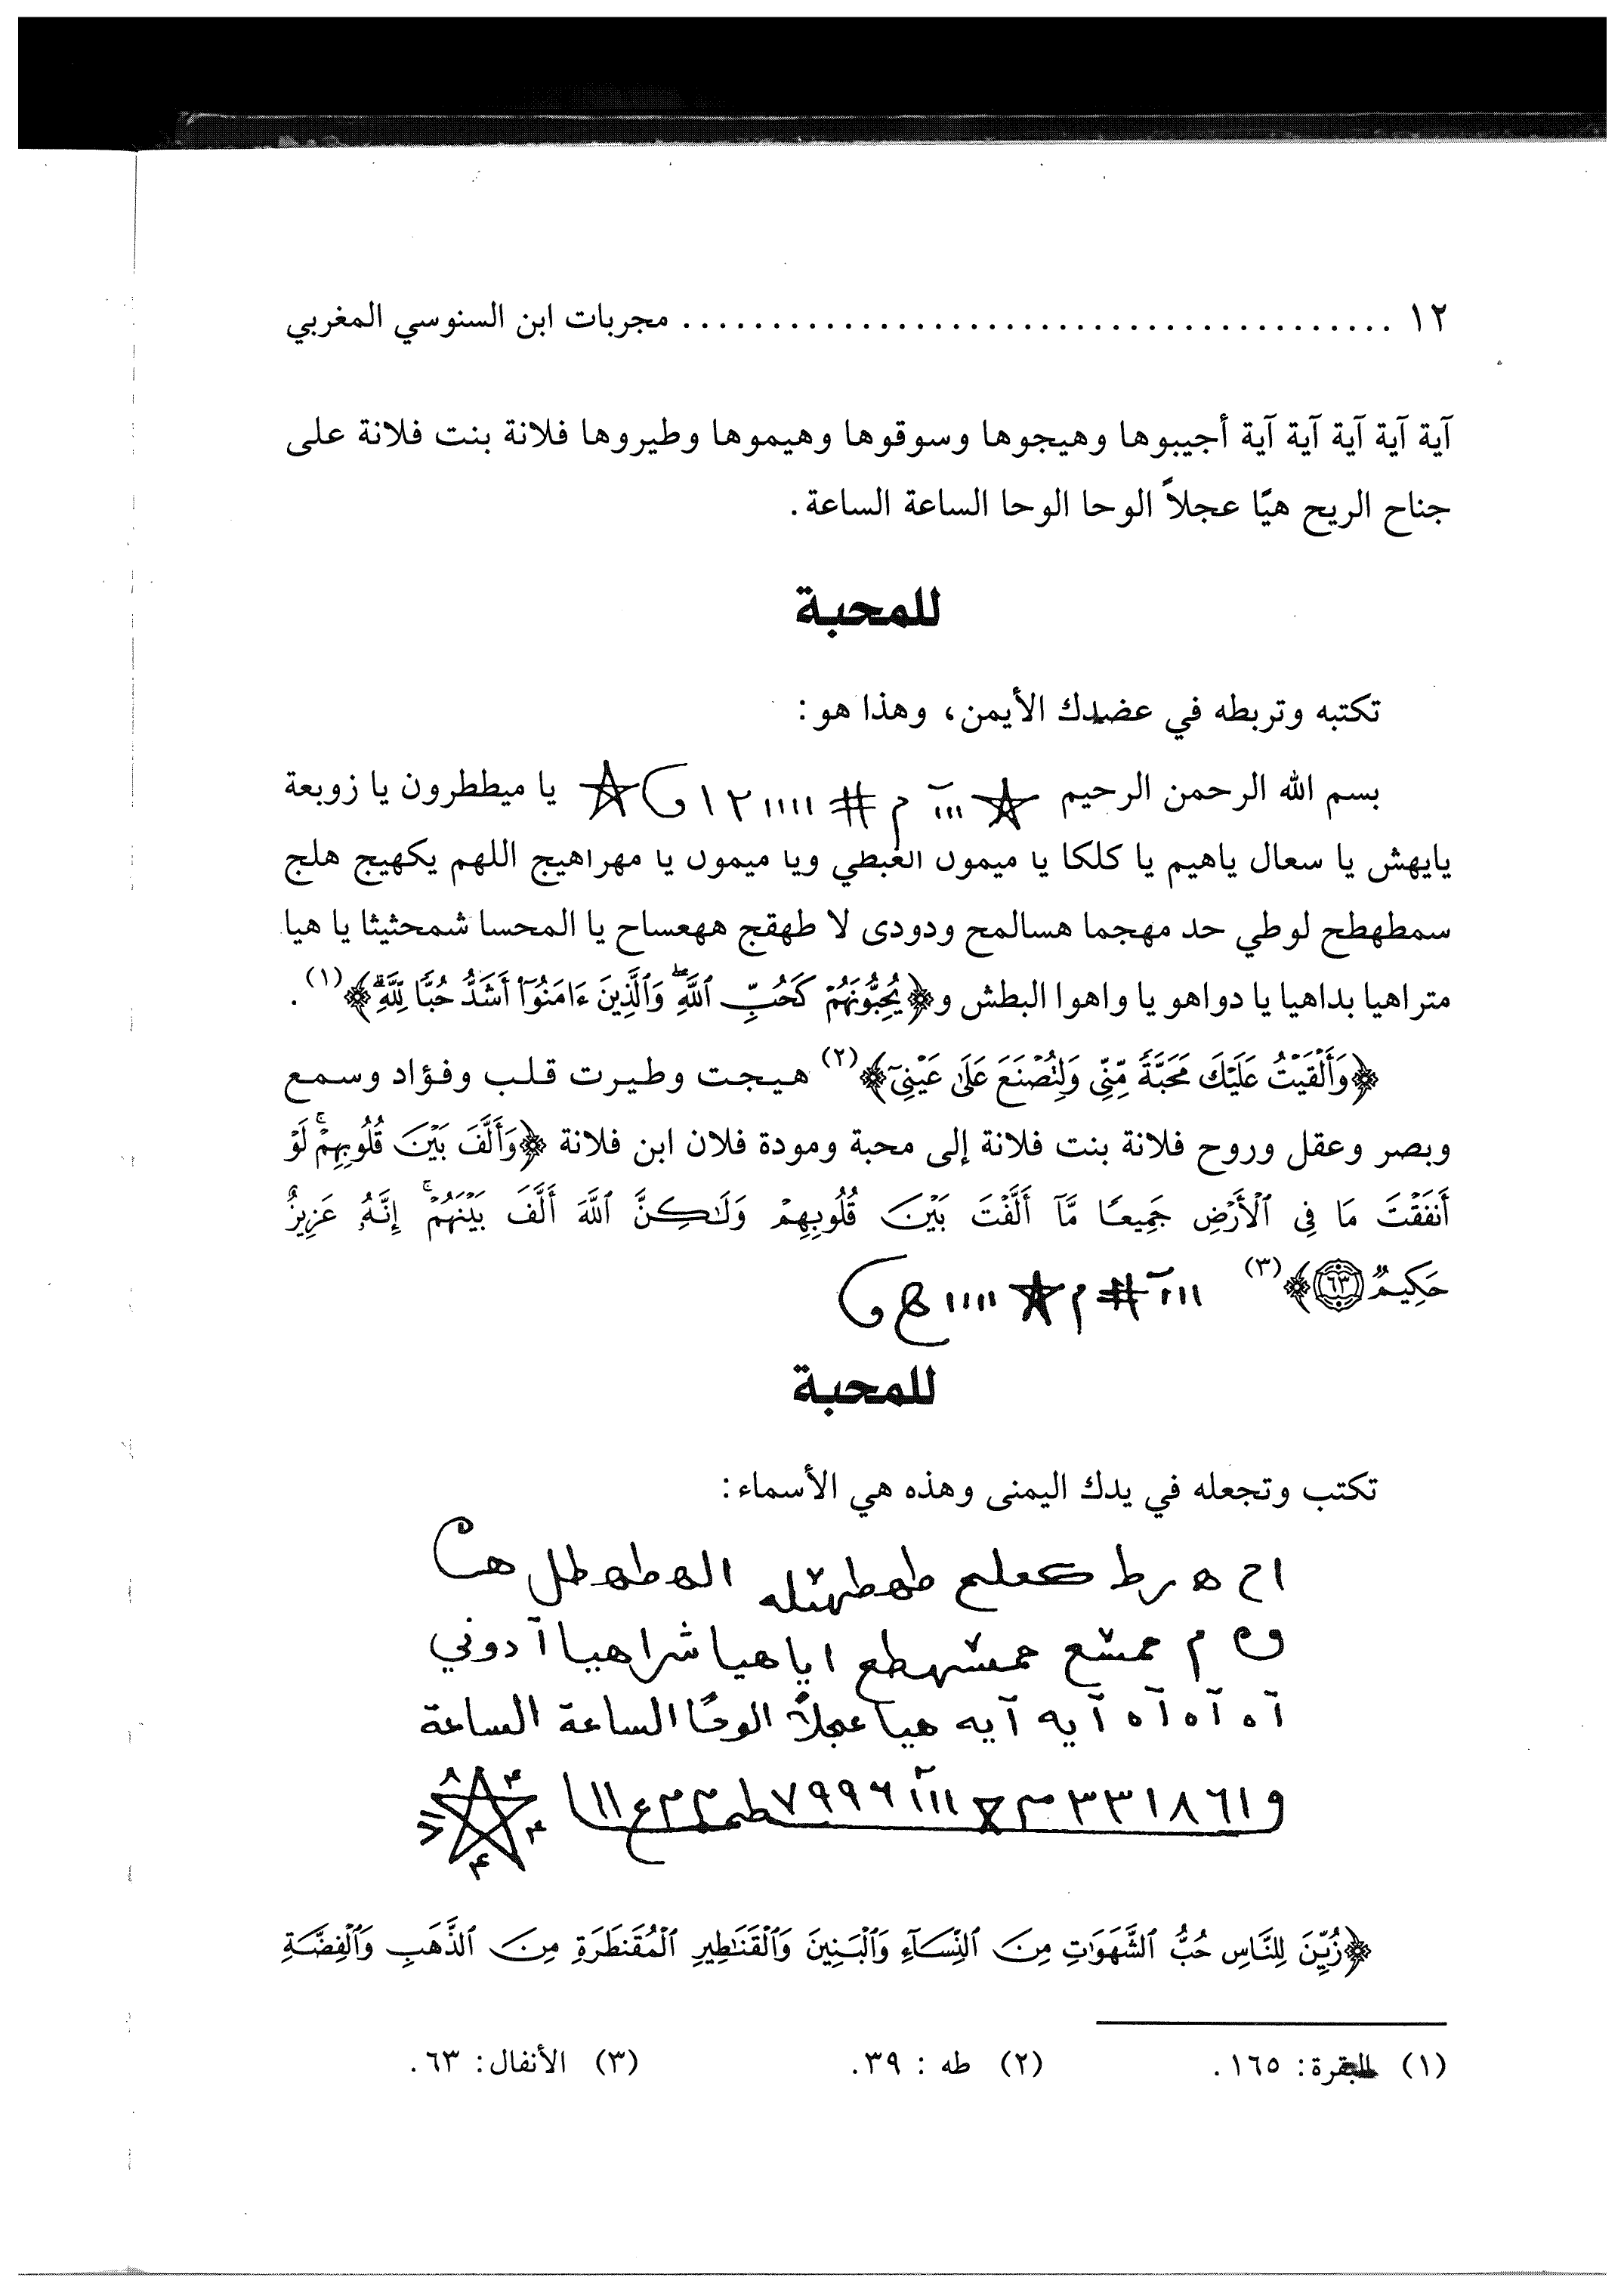 ١٢ ........................................ مجربات ابن السنوسي المغربي
آية آية آية آية آية أجيبوها وهيجوها وسوقوها وهيموها وطيروها فلانة بنت فلانة على
جناح الريح هيّا عجلاً الوحا الوحا الساعة الساعة.
للمحبة
تكتبه وتربطه في عضدك الأيمن، وهذا هو:
بسم الله الرحمن الرحيم ١٢ ١١١١ # م ااا يا ميططرون يا زوبعة
يايهش يا سعال ياهيم يا كلكا يا ميمون الغبطي ويا ميمون يا مهراهيج اللهم يكهيج هلج
سمطهطح لوطي حد مهجما هسالمح ودودى لا طهقج ههعساح يا المحسا شمحثيثا يا هيا
متراهيا بداهيا يا دواهو يا واهوا البطش و﴿يُحِبُّونَهُمْ كَحُبِّ ٱللَّهِ ۖ وَٱلَّذِينَ ءَامَنُوٓا۟ أَشَدُّ حُبًّا لِّلَّهِ ۗ﴾(١).
﴿وَأَلْقَيْتُ عَلَيْكَ مَحَبَّةً مِّنِّى وَلِتُصْنَعَ عَلَىٰ عَيْنِىٓ﴾(٢) هيجت وطيرت قلب وفؤاد وسمع
وبصر وعقل وروح فلانة بنت فلانة إلى محبة ومودة فلان ابن فلانة ﴿وَأَلَّفَ بَيْنَ قُلُوبِهِمْ ۚ لَوْ
أَنفَقْتَ مَا فِى ٱلْأَرْضِ جَمِيعًا مَّآ أَلَّفْتَ بَيْنَ قُلُوبِهِمْ وَلَـٰكِنَّ ٱللَّهَ أَلَّفَ بَيْنَهُمْ ۚ إِنَّهُۥ عَزِيزٌ
حَكِيمٌ ٦٣﴾(٣) ااا # م ★ ١١١١ ه
للمحبة
تكتب وتجعله في يدك اليمنى وهذه هي الأسماء:
اح ه رط كعلم طهطهثله الهطهطل
م همشع همشهطع اياهيا شراهيا آدوني
آه آه آه آيه آيه هيا عجلاً الوحًا الساعة الساعة
و١ ٦ ٨ ١ ٣ ٣ ااا ٦ ٩ ٩ ٧
﴿زُيِّنَ لِلنَّاسِ حُبُّ ٱلشَّهَوَٰتِ مِنَ ٱلنِّسَآءِ وَٱلْبَنِينَ وَٱلْقَنَـٰطِيرِ ٱلْمُقَنطَرَةِ مِنَ ٱلذَّهَبِ وَٱلْفِضَّةِ
(١) البقرة: ١٦٥. (٢) طه : ٣٩. (٣) الأنفال: ٦٣.